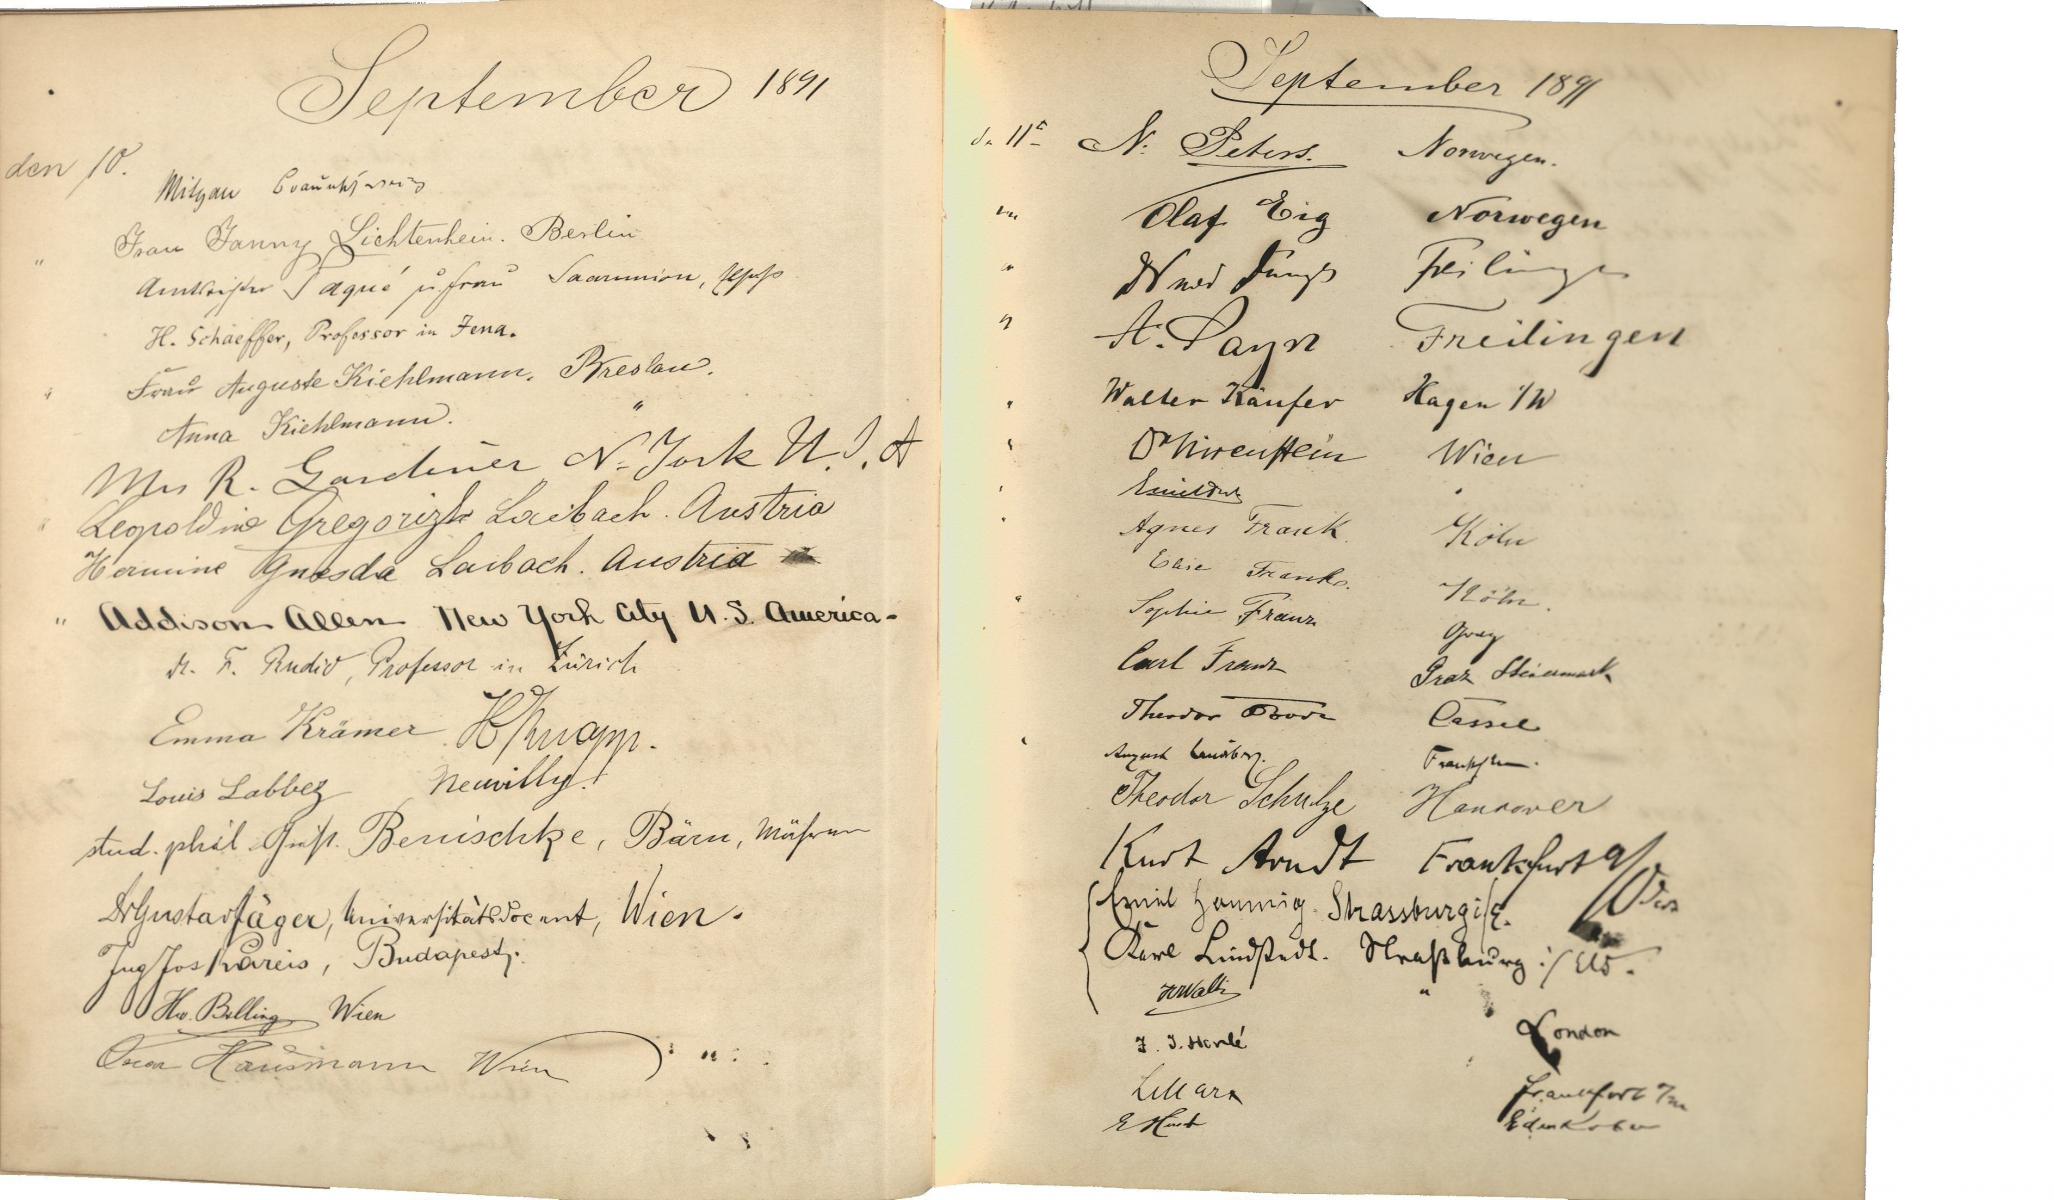 September 1891
den 10.
Mitgau Braunschweig
" Frau Fanny Lichtenhein. Berlin
Amtsrichter Paqué u. Frau Saarunion,
H. Schaeffer, Professor in Jena.
" Frau Auguste Kiehlmann. Breslau.
Anna Kiehlmann. "
Mrs R. Gardiner N. York U.S.A
" Leopoldine Gregorizh Laibach. Austria
Hermine Gnesda Laibach. Austria
" Addison Allen New York City U.S. America -
Dr. F. Rudio, Professor in Zürich
Emma Krämer H Knapp.
Louis Labbez Neuvilly.
stud. phil. Gust. Benischke, Bärn, Mähren
Dr Gustav Jäger, Universitätsdocent, Wien.
Ing Jos Kareis, Budapest.
Billing Wien
Oscar Hausmann Wien
September 1891
11t N. Peters. Norwegen.
Olaf Eig Norwegen
" Freilingen
" A. Payn Freilingen
" Walter Käufer Hagen i/W
" Dr Wien
" "
" Agnes Frank. Köln
Elise Frank. Köln.
" Sophie Franz Graz
Carl Franz Graz Steiermark
Theodor Bode Cassel
" August Frankfurt.
Theodor Schulze Hannover
Kurt Arndt Frankfurt a/Oder
Emil Hennig. Strassburg i/E.
Karl Lindstedt. Straßburg i/Els.
"
London
Frankfurt
E Edenkoben